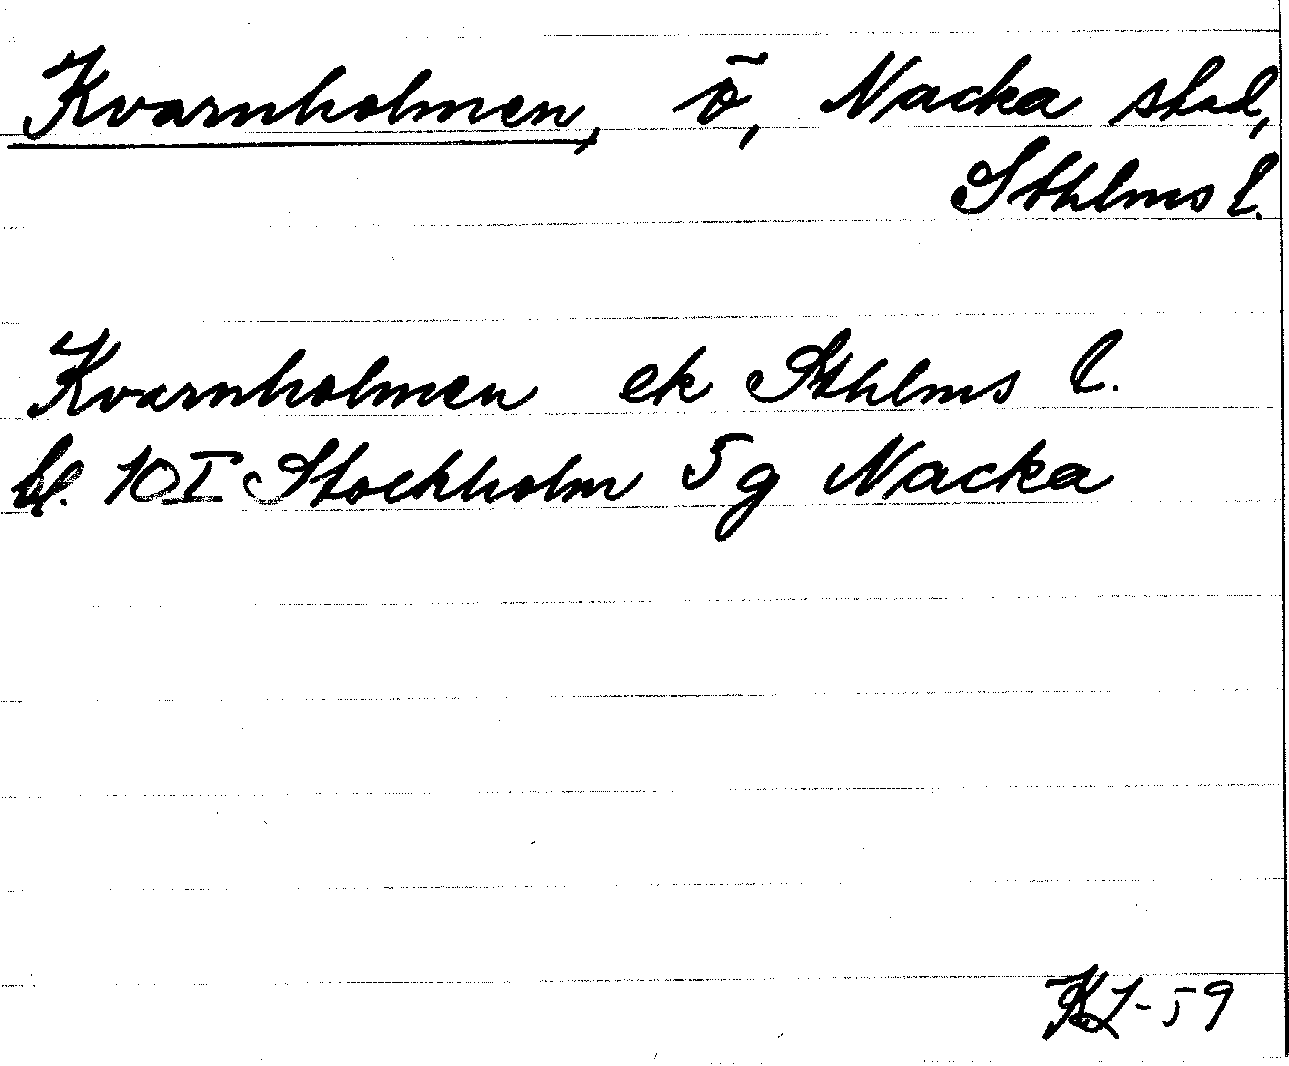 Kvarnholmen, ö, Nacka stad,
Sthlms l.
Kvarnholmen ek Sthlms l.
bl. 10 I Stockholm 5 g Nacka
KL-59